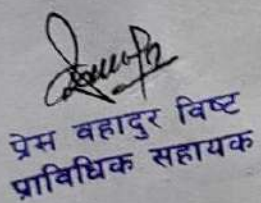 प्रेम वहादुर विष्ट
प्राविधिक सहायक